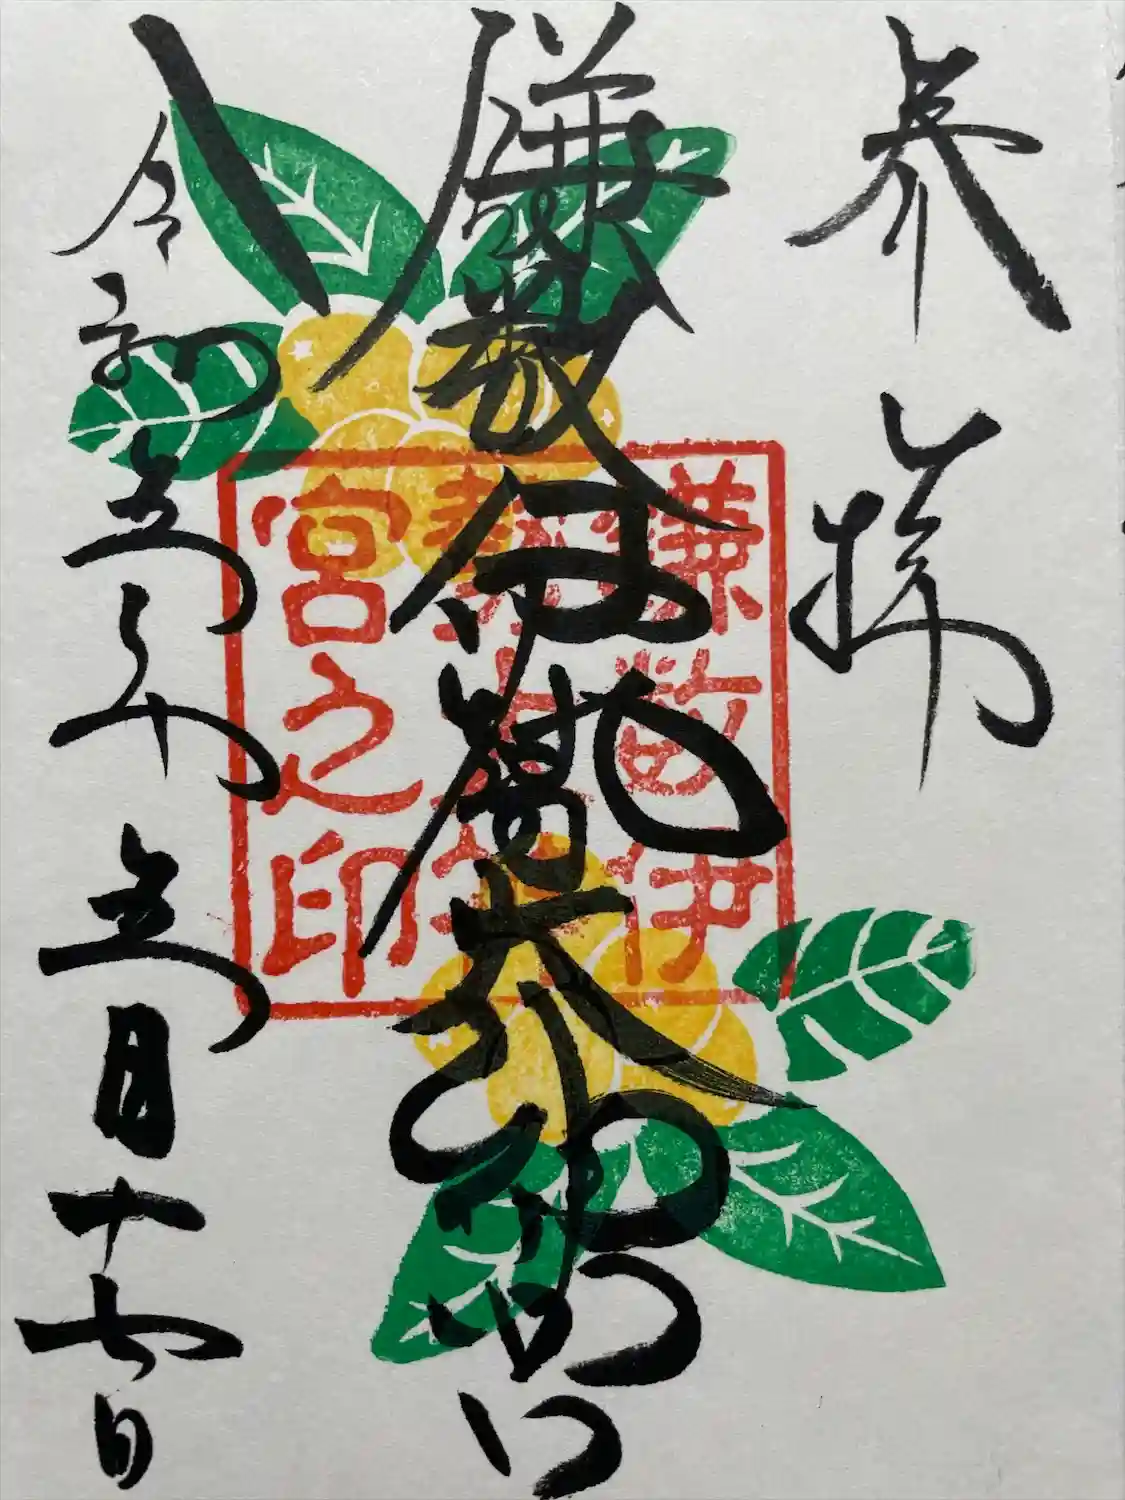 奉拝
鎌数伊勢大神宮
鎌数伊
勢大神
宮之印
令和五年五月十七日